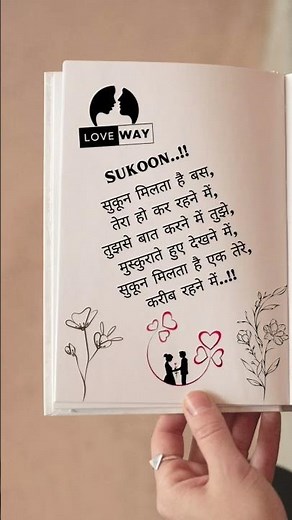 LOVE WAY
SUKOON..!!
सुकून मिलता है बस,
तेरा हो कर रहने में,
तुझसे बात करने में तुझे,
मुस्कुराते हुए देखने में,
सुकून मिलता है एक तेरे,
करीब रहने में..!!